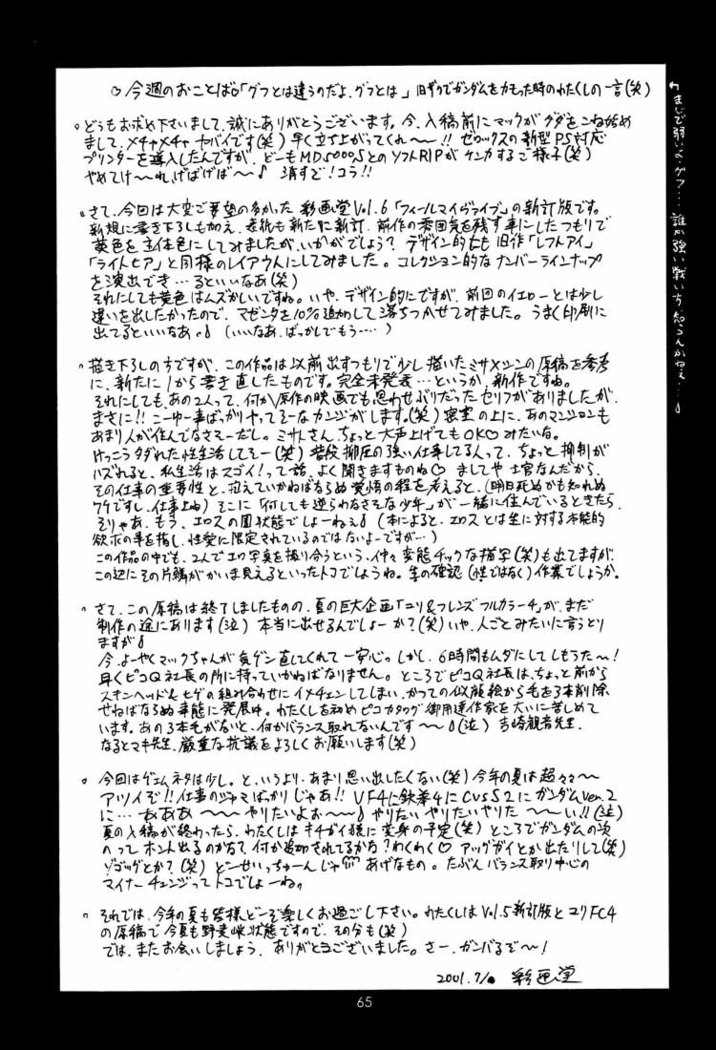 今週のおことば「グフとは違うのだよ、グフとは」旧ザクでガンダムをカモった時のわたくしの一言(笑)
。どうもお求め下さいまして、誠にありがとうございます。今、入稿前にマックがグダをこね始め
まして、メチャメチャヤバイです(笑)早く立ち上がってくれ〜!!ゼロックスの新型PS対応
プリンターを導入したんですが、どーもMD5000SとのソフトRIPがケンカするご様子(笑)
やめてけ〜れ、げばげば〜♪ 消すぞ!コラ!!
。さて、今回は大変ご要望の多かった 彩画堂Vol.6「フィールマイヴァイブ」の新訂版です。
新規に書き下ろしも加え、表紙も新たに新訂、前作の雰囲気を残す事にしたつもりで
黄色を主体色にしてみましたが、いかがでしょう?デザイン的にも旧作「レフトアイ」
「ライトヒア」と同様のレイアウトにしてみました。コレクション的なナンバーラインナップ
を演出でき…るといいなあ(笑)
それにしても黄色はムズかしいですね。いや、デザイン的にですが、前回のイエローとは少し
違いを出したかったので、マゼンタを10%追加して落ちつかせてみました。うまく印刷に
出てるといいなあ。(いいなあ、ばっかしでもう……)
。描き下ろしの方ですが、この作品は以前出すつもりで少し描いたミサ×シンの原稿を参考
に、新たに1から書き直したものです。完全未発表…というか、新作ですね。
それにしても、あの2人って、何か原作の映画でも思わせぶりだったセリフがありましたが、
まさに!!こーゆー事ばっかりやってそーなカンジがします。(笑)密室の上に、あのマンションも
あまり人が住んでなさそーだし。ミサトさん、ちょっと大声上げてもOK♡みたいな。
けっこうタダれた性生活してそー(笑)普段抑圧の強い仕事してる人って、ちょっと抑制が
ハズれると、私生活はスゴイ!って話、よく聞きますものね♡ ましてや士官なんだから、
その仕事の重要性と、抱えていかねばならぬ覚悟の程を考えると、(明日死ぬかも知れぬ
ワケですし、仕事上ね)そこに「何しても逆らわなさそな少年」が一緒に住んでいるときたら、
そりゃあ、もう、エロスの園状態でしょーねぇ(本によると、エロスとは生に対する本能的
欲求の事を指し、性愛に限定されているのではないよーですが…)
この作品の中でも、2人でエロ写真を撮り合うという、仲々変態チックな描写(笑)も出てますが、
この辺にその片鱗がかいま見えるといったトコでしょうね。生の確認(性ではなく)作業でしょうか。
。さて、この原稿は終了しましたものの、夏の巨大企画「ユリ&フレンズフルカラー4」が、まだ
制作の途にあります(泣)本当に出せるんでしょーか?(笑)いや、人ごとみたいに言うとり
ますが
今、よーやくマックちゃんが気ゲン直してくれて一安心っ しかし、6時間もムダにしてしもうた〜!
早くピコQ社長の所に持っていかねばなりません。ところでピコQ社長は、ちょっと前から
スキンヘッド&ヒゲの組み合わせにイメチェンしてしまい、かつての似顔絵から毛を3本削除
せねばならぬ事態に発展中。わたくしを初めピコカタログ御用達作家を大いに苦しめて
います。あの3本毛がないと、何かバランス取れないんです〜〜(泣)吉崎観音先生、
なるとマキ先生、厳重な抗議をよろしくお願いします(笑)
。今回はゲエムネタは少し。と、いうより、あまり思い出したくない(笑)今年の夏は超々々〜
アツイぞ!!仕事のジャマばっかりじゃあ!!VF4に鉄拳4にCvsS2にガンダムVer.2
に…ああああ〜〜〜やりたいよお〜〜やりたいやりたいやりた〜〜い!!(泣)
夏の入稿が終わったら、わたくしはキチガイ猿に変身の予定(笑)ところでガンダムの次
のってホント出るのかな?何か追加されてるかな?わくわく♡ アッガイとか出たりして(笑)
ゾゴックとか?(笑)どーせいっちゅーんじゃ あげなもの。たぶんバランス取り中心の
マイナーチェンジってトコでしょーね。
。それでは、今年の夏も皆様、どーぞ楽しくお過ごし下さい。わたくしはVol.5新訂版とユリFC4
の原稿で今夏も野麦峠状態ですので、その分も(笑)
では、またお会いしましょう、ありがとうございました。さー、ガンバるぞ〜!
2001.7/ 彩画堂
まじで弱いよ、グフ…。誰か強い戦い方知らんかねえ…
65